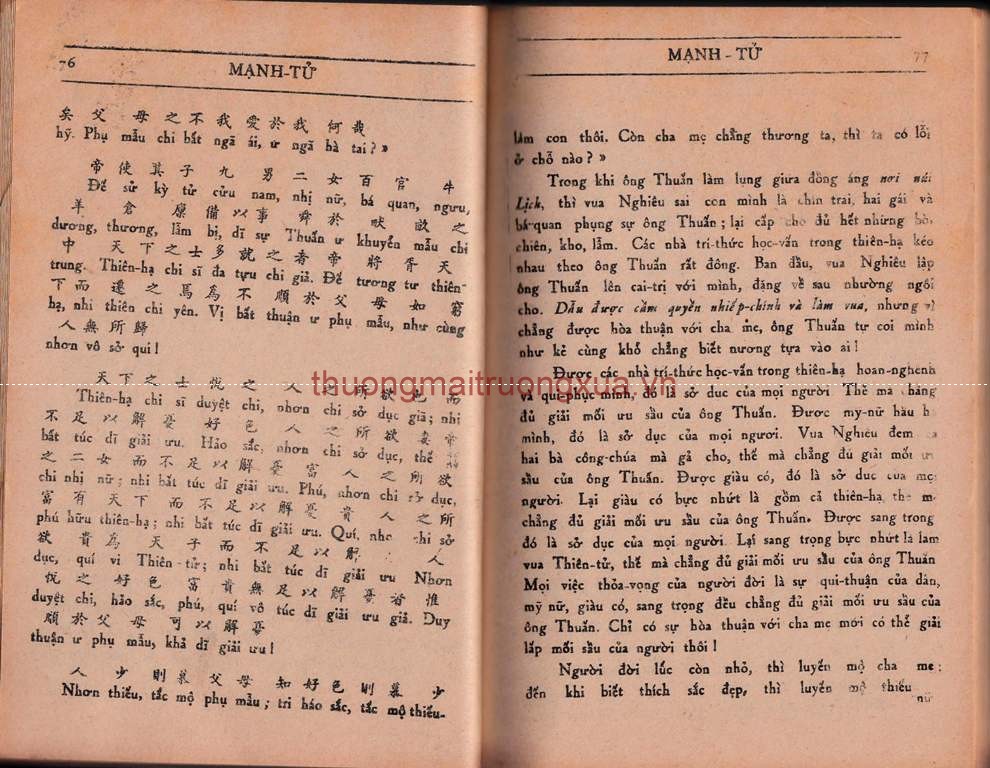 76
MẠNH-TỬ
矣 父 母 之 不 我 愛 於 我 何 哉
hỹ. Phụ mẫu chi bất ngã ái, ư ngã hà tai? »
帝 使 其 子 九 男 二 女 百 官 牛
Đế sử kỳ tử cửu nam, nhị nữ, bá quan, ngưu,
羊 倉 廩 備 以 事 舜 於 畎 畝 之
dương, thương, lẫm bị, dĩ sự Thuấn ư khuyển mẫu chi
中 天 下 之 士 多 就 之 者 帝 將 胥 天
trung. Thiên-hạ chi sĩ đa tựu chi giả. Đế tương tư thiên-
下 而 遷 之 焉 為 不 順 於 父 母 如 窮
hạ, nhi thiên chi yên. Vị bất thuận ư phụ mẫu, như cùng
人 無 所 歸
nhơn vô sở qui!
天 下 之 士 悅 之 人 之 所 欲 也 而
Thiên-hạ chi sĩ duyệt chi, nhơn chi sở dục giã; nhi
不 足 以 解 憂 好 色 人 之 所 欲 妻 帝
bất túc dĩ giải ưu. Hảo sắc, nhơn chi sở dục, thế
之 二 女 而 不 足 以 解 憂 富 人 之 所 欲
chi nhị nữ; nhi bất túc dĩ giải ưu. Phú, nhơn chi sở dục,
富 有 天 下 而 不 足 以 解 憂 貴 人 之 所
phú hữu thiên-hạ; nhi bất túc dĩ giải ưu. Quí, nho chi sở
欲 貴 為 天 子 而 不 足 以 解 人
dục, quí vi Thiên-tử; nhi bất túc dĩ giải ưu Nhơn
悅 之 好 色 富 貴 無 足 以 解 憂 者 惟
duyệt chi, hảo sắc, phú, quí vô túc dĩ giải ưu giả. Duy
順 於 父 母 可 以 解 憂
thuận ư phụ mẫu, khả dĩ giải ưu!
人 少 則 慕 父 母 知 好 色 則 慕 少
Nhơn thiếu, tắc mộ phụ mẫu; tri háo sắc, tắc mộ thiếu-
MẠNH - TỬ
77
làm con thôi. Còn cha mẹ chẳng thương ta, thì ta có lỗi
ở chỗ nào? »
Trong khi ông Thuấn làm lụng giữa đồng áng nơi núi
Lịch, thì vua Nghiêu sai con mình là chín trai, hai gái và
bá-quan phụng sự ông Thuấn; lại cấp cho đủ hết những bò,
chiên, kho, lẫm. Các nhà trí-thức học-vấn trong thiên-hạ kéo
nhau theo ông Thuấn rất đông. Ban đầu, vua Nghiêu lập
ông Thuấn lên cai-trị với mình, đặng về sau nhường ngôi
cho. Dẫu được cầm quyền nhiếp-chính và làm vua, nhưng vì
chẳng được hòa thuận với cha mẹ, ông Thuấn tự coi mình
như kẻ cùng khổ chẳng biết nương tựa vào ai!
Được các nhà trí-thức học-vấn trong thiên-hạ hoan-nghênh
và qui-phục mình, đó là sở dục của mọi người Thế mà chẳng
đủ giải mối ưu sầu của ông Thuấn. Được mỹ-nữ hầu hạ
mình, đó là sở dục của mọi người. Vua Nghiêu đem
hai bà công-chúa mà gả cho, thế mà chẳng đủ giải mối ưu
sầu của ông Thuấn. Được giàu có, đó là sở dục của mọi
người. Lại giàu có bực nhứt là gồm cả thiên-hạ, thế mà
chẳng đủ giải mối ưu sầu của ông Thuấn. Được sang trọng
đó là sở dục của mọi người. Lại sang trọng bực nhứt là làm
vua Thiên-tử, thế mà chẳng đủ giải mối ưu sầu của ông Thuấn
Mọi việc thỏa-vọng của người đời là sự qui-thuận của dân,
mỹ nữ, giàu có, sang trọng đều chẳng đủ giải mối ưu sầu của
ông Thuấn. Chỉ có sự hòa thuận với cha mẹ mới có thể giải
lấp mối sầu của người thôi!
Người đời lúc còn nhỏ, thì luyến mộ cha mẹ;
đến khi biết thích sắc đẹp, thì luyến mộ thiếu
nữ
thuongmaitruongxua.vn